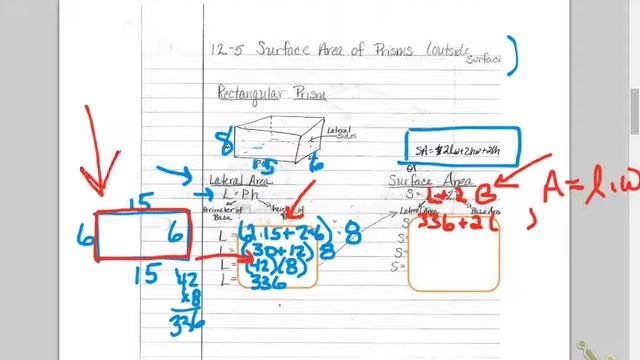 12-5 Surface Area of Prisms (outside surface)
Rectangular Prism
8
Lateral Sides
15
6
SA = 2lw+2hw+2lh
or
Lateral Area
Surface Area
A = l.w
L = P.h
S = L + 2 B
Perimeter of Base
height of
Lateral Area
Base Area
15
6
6
15
L = (2·15+2·6)·8
L = (30+12) 8
L = (42)(8)
L = 336
336+2( )
S =
S =
S =
42
x8
336